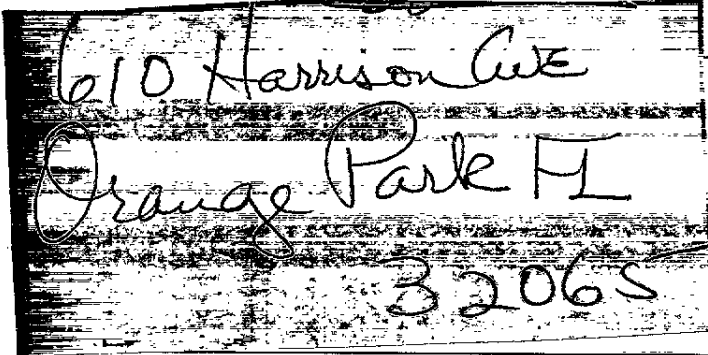 610 Harrison Ave
Orange Park FL
32065